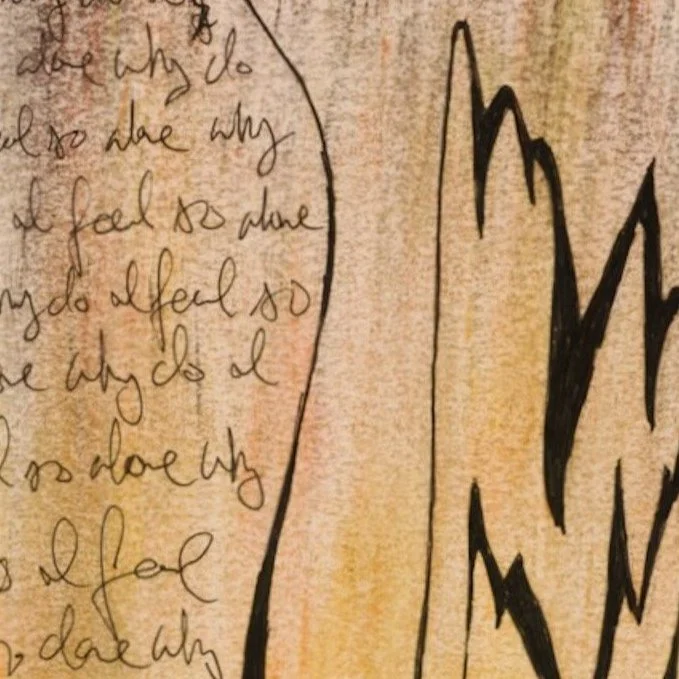 alone why do
so alone why
I feel so alone
do I feel so
why do I
so alone why
I feel
alone why